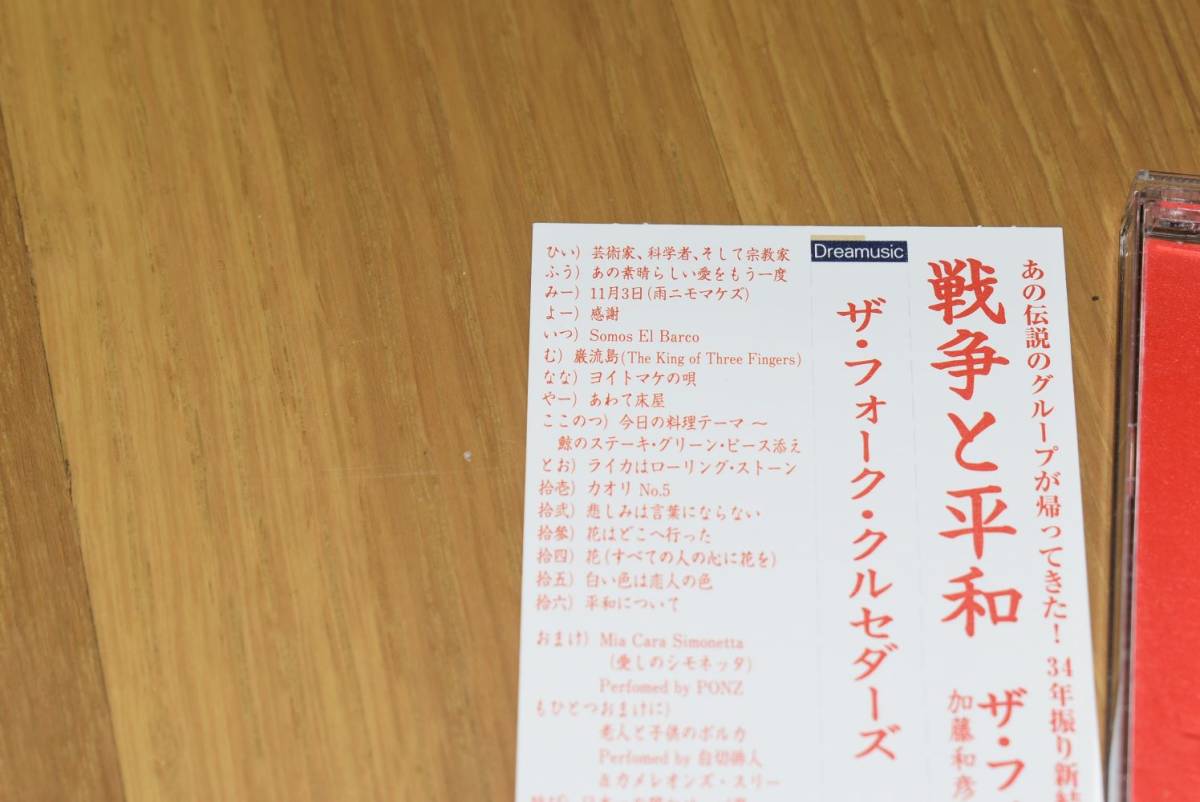 あの伝説のグループが帰ってきた! 34年振り新
戦争と平和 ザ・フ
加藤和彦
Dreamusic
ザ・フォーク・クルセダーズ
ひい) 芸術家、科学者、そして宗教家
ふう) あの素晴らしい愛をもう一度
みー) 11月3日(雨ニモマケズ)
よー) 感謝
いつ) Somos El Barco
む) 巌流島(The King of Three Fingers)
なな) ヨイトマケの唄
やー) あわて床屋
ここのつ) 今日の料理テーマ 〜
鯨のステーキ・グリーン・ピース添え
とお) ライカはローリング・ストーン
拾壱) カオリ No.5
拾弐) 悲しみは言葉にならない
拾参) 花はどこへ行った
拾四) 花(すべての人の心に花を)
拾五) 白い色は恋人の色
拾六) 平和について
おまけ) Mia Cara Simonetta
(愛しのシモネッタ)
Perfomed by PONZ
もひとつおまけに)
老人と子供のポルカ
Perfomed by 自切俳人
&カメレオンズ・スリー